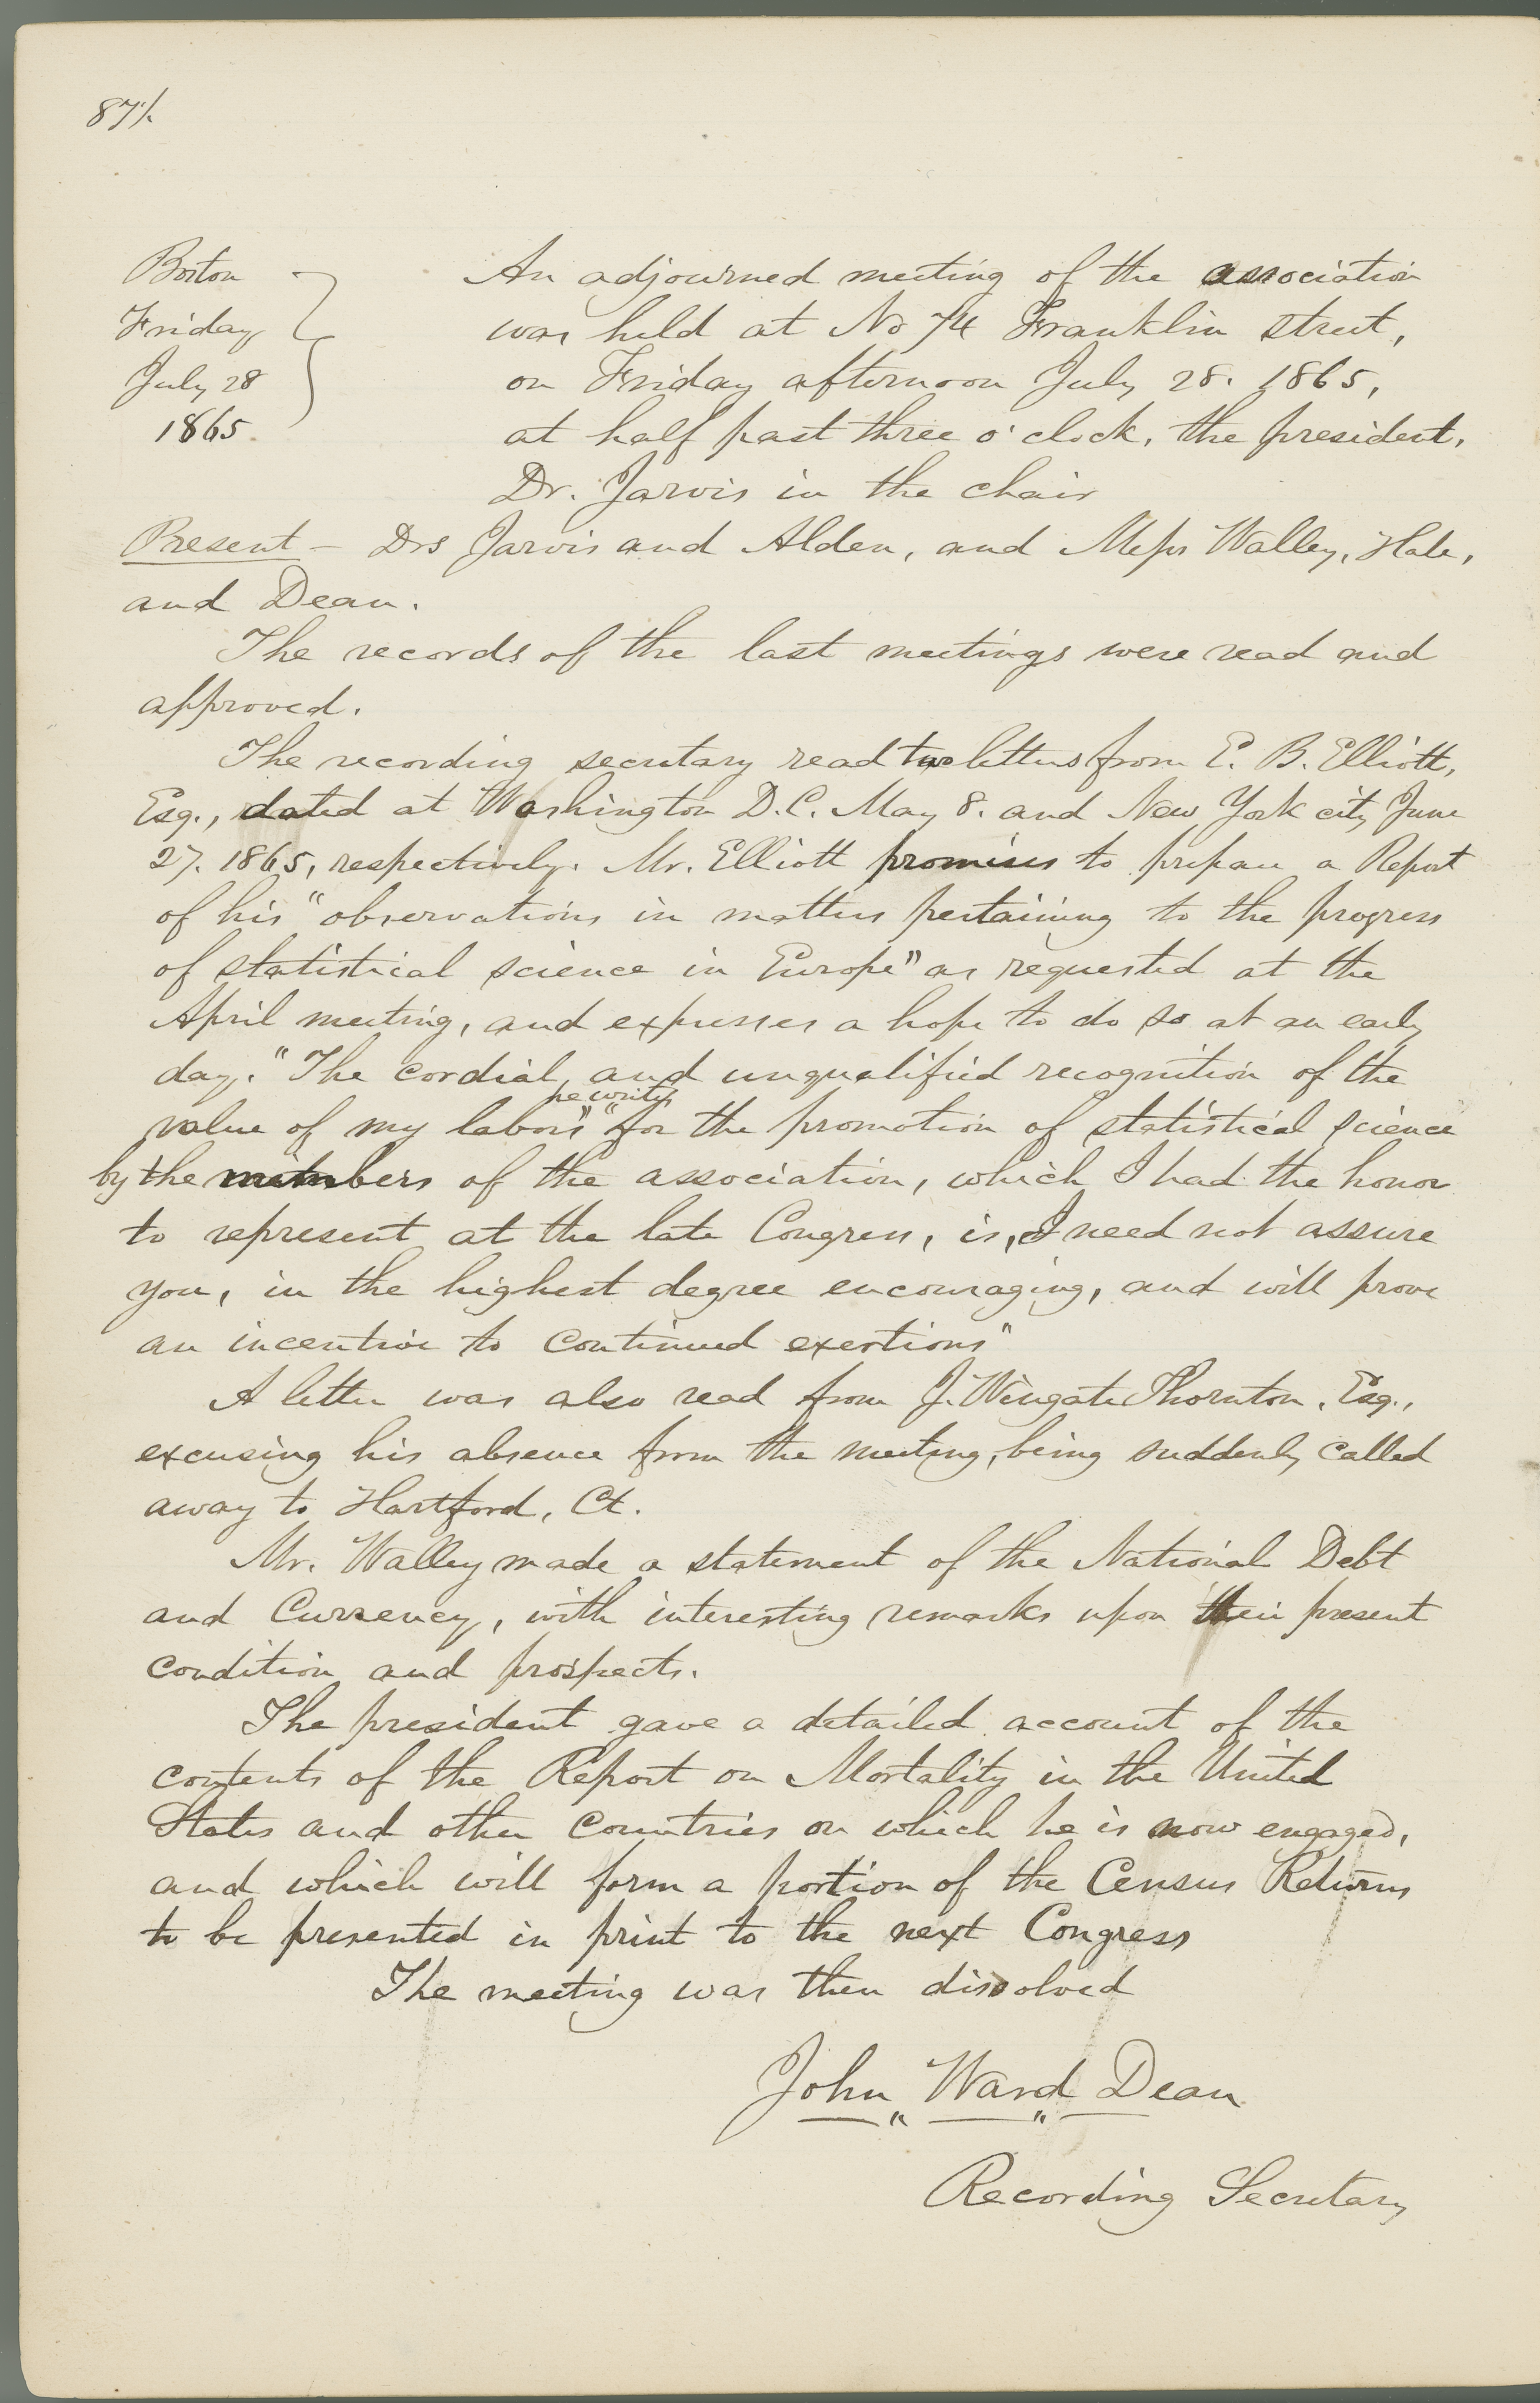 87½
Boston
Friday
July 28
1865.
An adjourned meeting of the association
was held at No 74 Franklin street,
on Friday afternoon July 28. 1865,
at half past three o'clock, the president,
Dr. Jarvis in the chair
Present – Drs Jarvis and Alden, and Messrs Walley, Hale,
and Dean.
The records of the last meetings were read and
approved.
The recording secretary read two letters from E. B. Elliott,
Esq., dated at Washington D.C. May 8. and New York city June
27. 1865, respectively. Mr. Elliott promises to prepare a Report
of his "observations in matters pertaining to the progress
of statistical science in Europe" as requested at the
April meeting, and expresses a hope to do so at an early
day. "The cordial, and unqualified recognition of the
he writes
value of my labors" "for the promotion of statistical science
by the members of the association, which I had the honor
to represent at the late Congress, is, I need not assure
you, in the highest degree encouraging, and will prove
an incentive to continued exertions"
A letter was also read from J. Wingate Thornton, Esq.,
excusing his absence from the meeting, being suddenly called
away to Hartford, Ct.
Mr. Walley made a statement of the National Debt
and Currency, with interesting remarks upon their present
condition and prospects.
The president gave a detailed account of the
contents of the Report on Mortality in the United
States and other countries on which he is now engaged,
and which will form a portion of the Census Returns
to be presented in print to the next Congress
The meeting was then dissolved
John Ward Dean
Recording Secretary